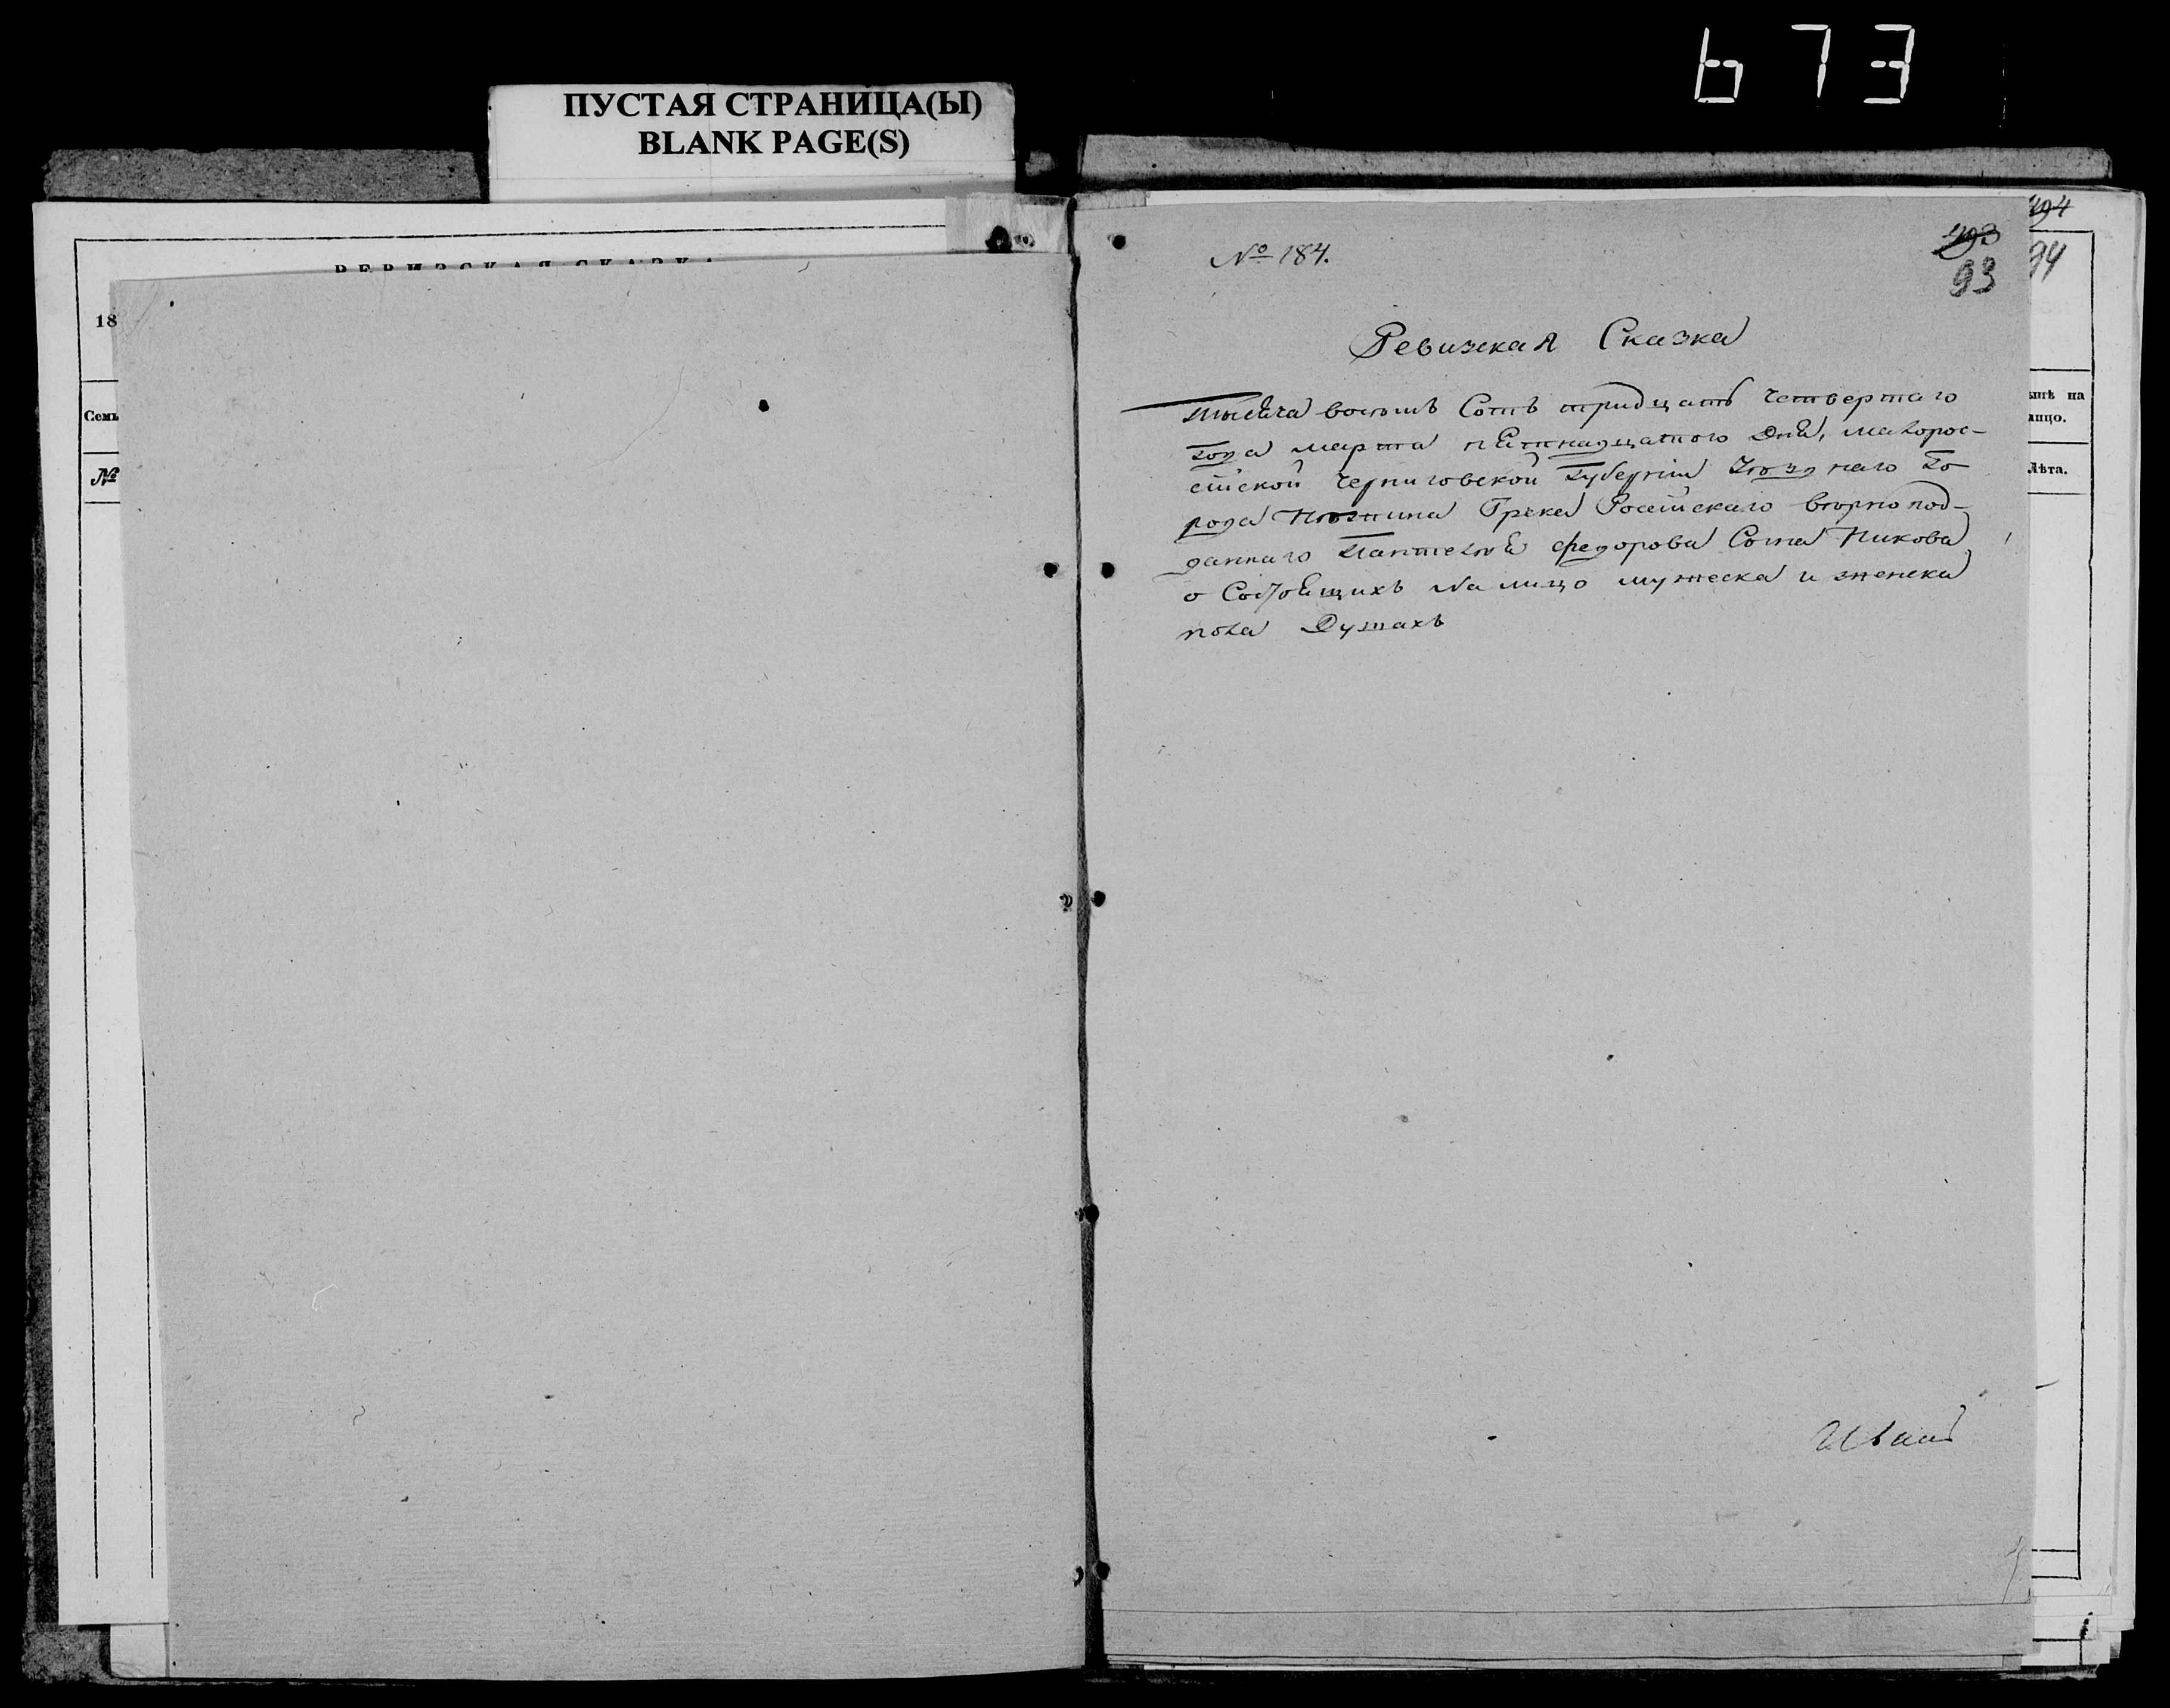 673
ПУСТАЯ СТРАНИЦА(Ы)
BLANK PAGE(S)
РЕВИЗСКАЯ СКАЗКА
18
Семь
№
№ 184.
493
93
494
94
Ревизская Сказка
Тысяча восемъ Сотъ тридцать четвертаго
года марта пятнадцатого Дня, малорос-
сійской Черниговской Губерніи уѣзднаго го
рода Нѣжина Грека Россійскаго вѣрнопод-
даннаго Пантелея Федорова Сына Никова
о Состоящихъ На лицо мужеска и женска
пола Душахъ
Иванъ
нѣ на
лицо.
Лѣта.